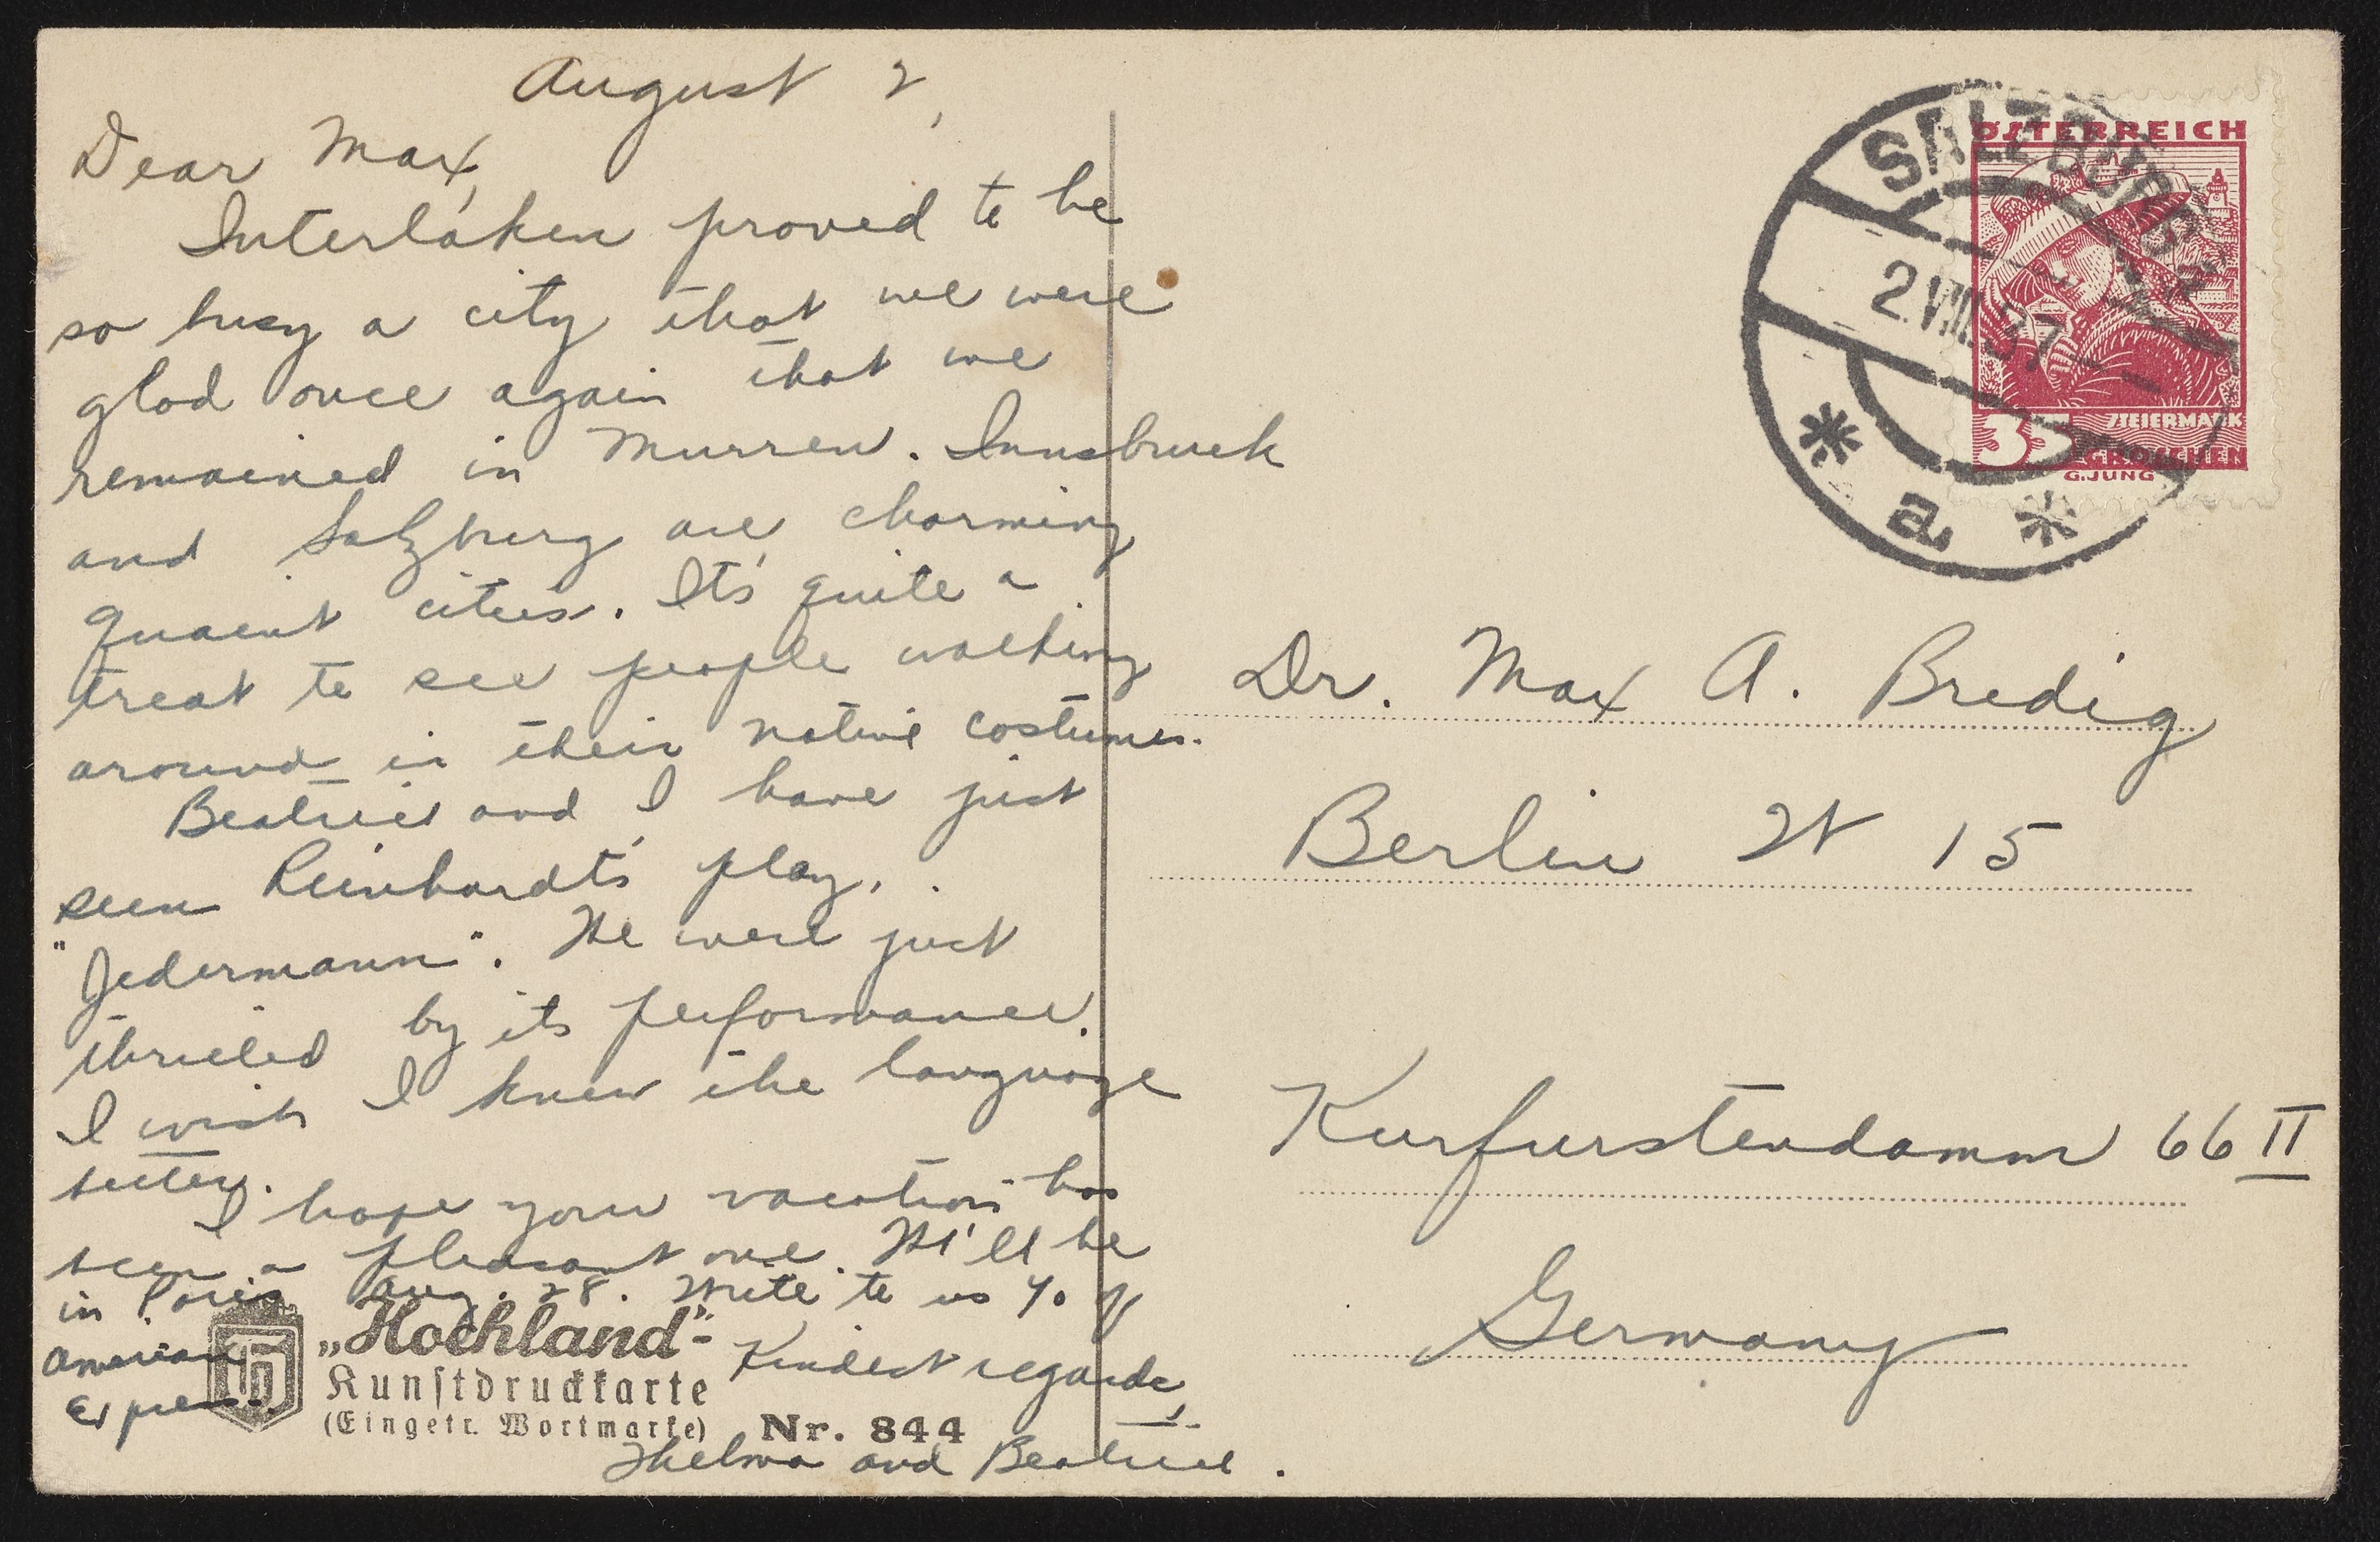 August 2,
Dear Max,
Interlaken proved to be
so busy a city that we were
glad once again that we
remained in Murren. Innsbruck
and Salzburg are charming
quaint cities. It's quite a
treat to see people walking
around in their native costumes.
Beatrice and I have just
seen Reinhardt's play,
"Jedermann". We were just
thrilled by its performance.
I wish I knew the language
better.
I hope your vacation has
been a pleasant one. We'll be
in Paris Aug. 28. Write to us %
American
Express.
Kindest regards,
Thelma and Beatrice.
„Hochland"-
Kunstdruckkarte
(Eingetr. Wortmarke) Nr. 844
ÖSTERREICH
STEIERMARK
35 GROSCHEN
G.JUNG
SALZBURG 2
2.VIII.37
* a *
Dr. Max A. Bredig
Berlin W 15
Kurfurstendamm 66 II
Germany